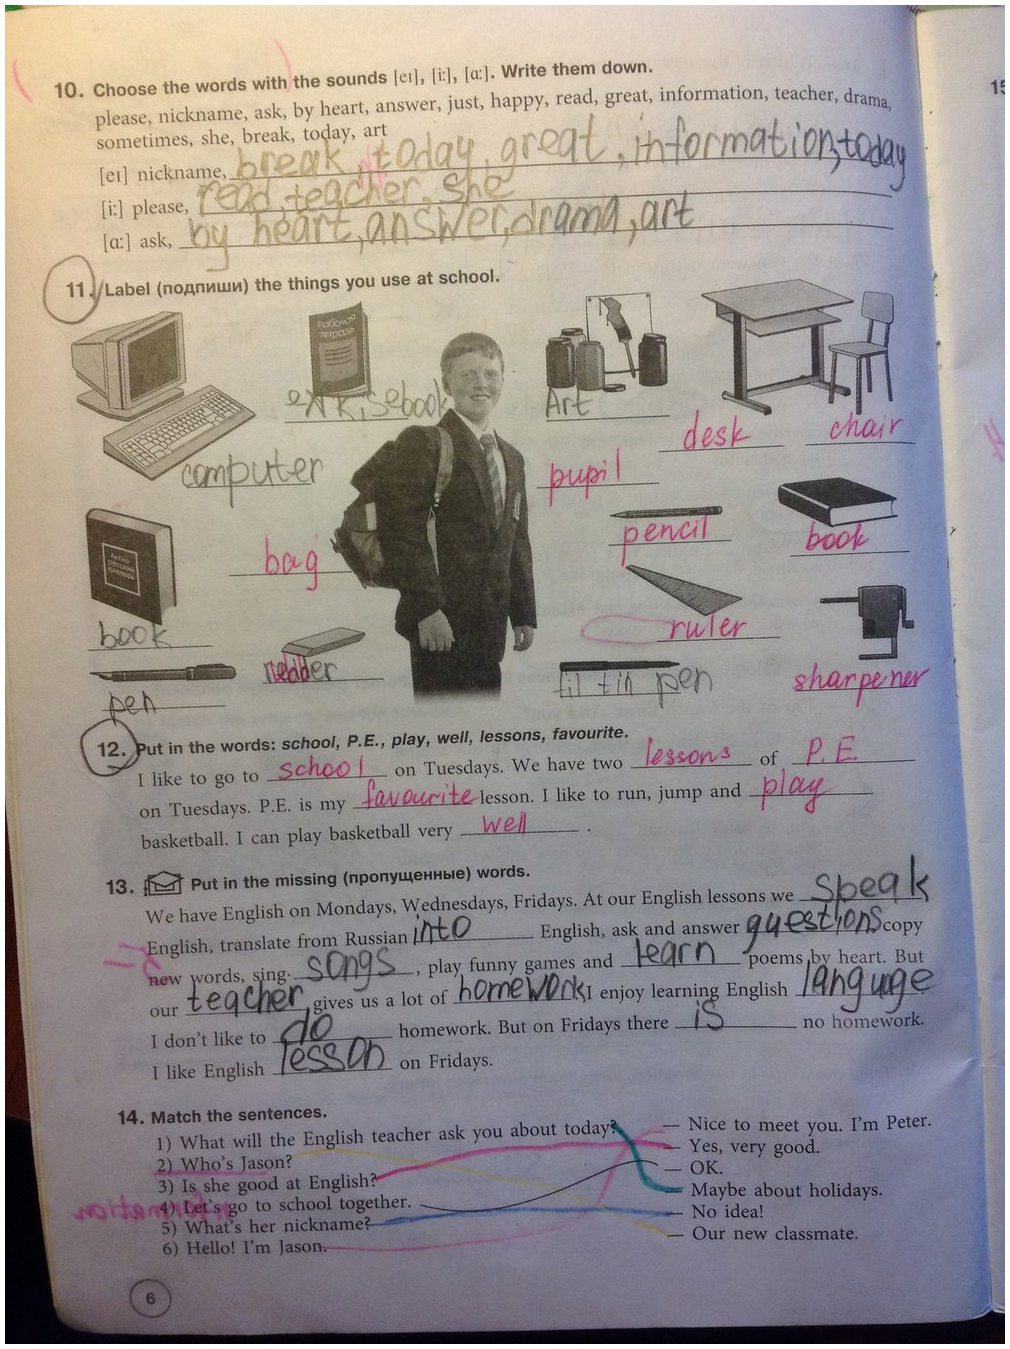 10. Choose the words with the sounds [eɪ], [i:], [ɑ:]. Write them down.
please, nickname, ask, by heart, answer, just, happy, read, great, information, teacher, drama,
sometimes, she, break, today, art
[eɪ] nickname, break, today, great, information, today
[i:] please, read, teacher, she
[ɑ:] ask, by heart, answer, drama, art
11. Label (подпиши) the things you use at school.
Рабочая
тетрадь
exkisebook
Art
desk
chair
computer
pupil
pencil
book
bag
Англо-
русский
словарь
ruler
book
pen
sharpener
pen
12. Put in the words: school, P.E., play, well, lessons, favourite.
I like to go to school on Tuesdays. We have two lessons of P.E.
on Tuesdays. P.E. is my favourite lesson. I like to run, jump and play
basketball. I can play basketball very well.
13. Put in the missing (пропущенные) words.
We have English on Mondays, Wednesdays, Fridays. At our English lessons we speak
English, translate from Russian into English, ask and answer questions, copy
5-
new words, sing songs, play funny games and learn poems by heart. But
our teacher gives us a lot of homework. I enjoy learning English languge
I don't like to do homework. But on Fridays there is no homework.
I like English lesson on Fridays.
14. Match the sentences.
1) What will the English teacher ask you about today? — Nice to meet you. I'm Peter.
2) Who's Jason? — Yes, very good.
3) Is she good at English? — OK.
4) Let's go to school together. — Maybe about holidays.
5) What's her nickname? — No idea!
6) Hello! I'm Jason. — Our new classmate.
6
15